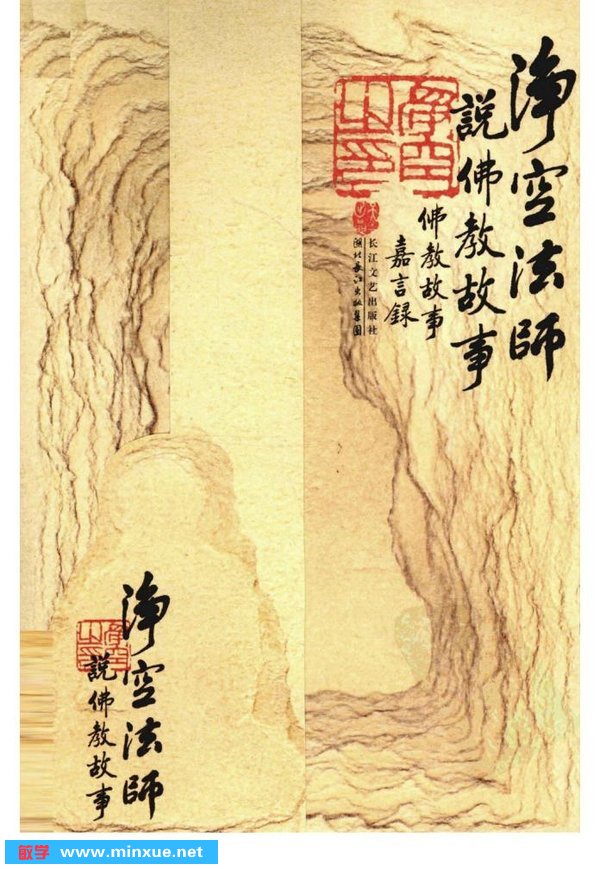 淨空法師
說佛教故事
淨空之印
佛教故事
嘉言錄
长江文艺出版社
湖北長江出版集團
淨空法師
說佛教故事
淨空之印
敏学 www.minxue.net